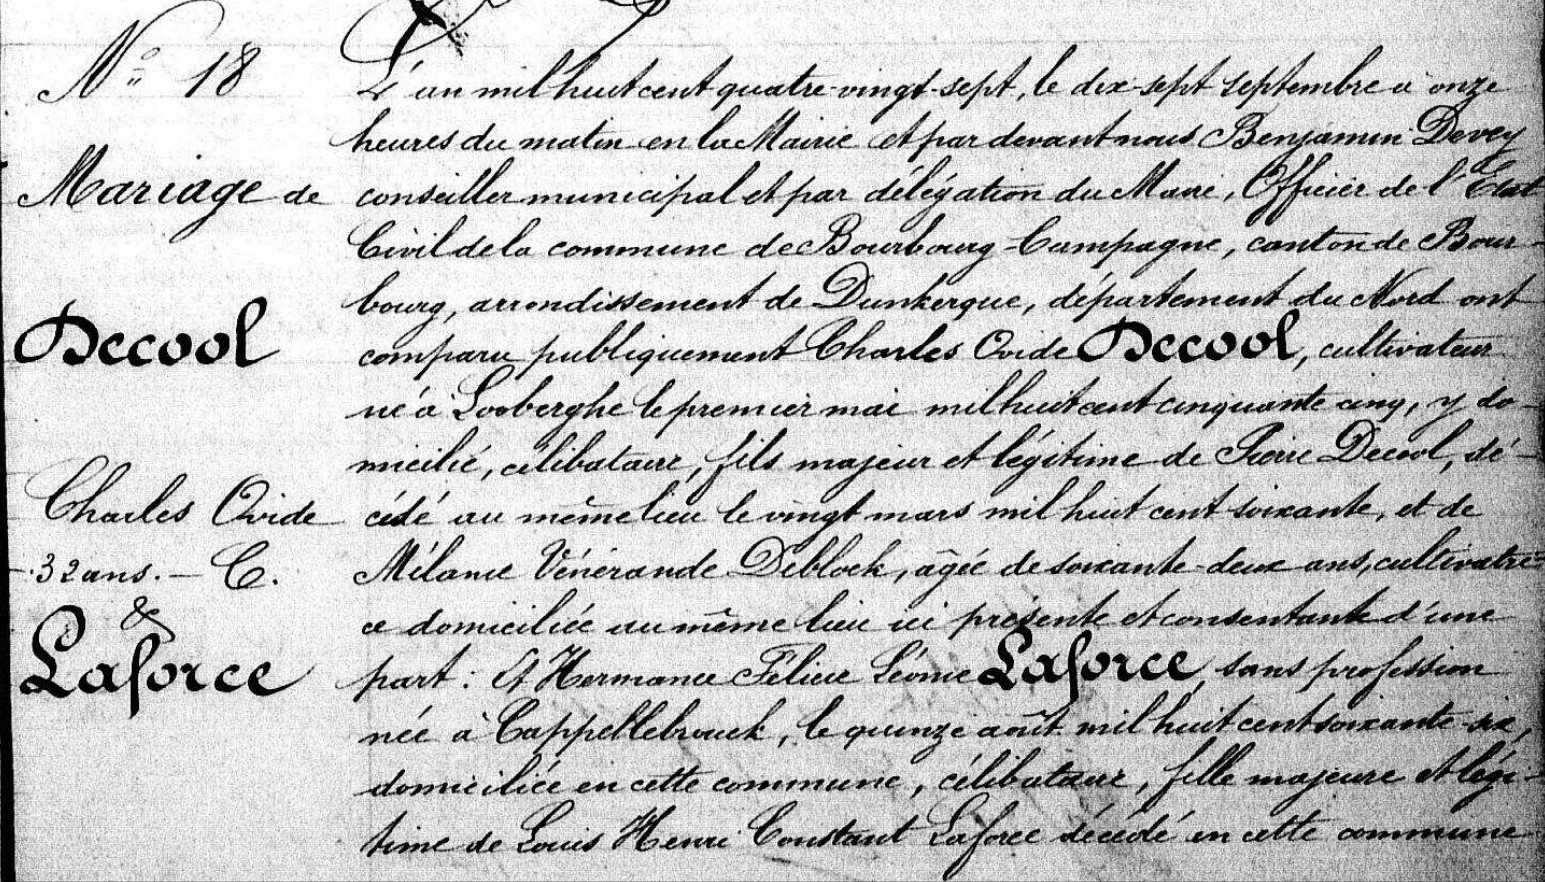 N° 18
Mariage de
Decool
Charles Ovide
32 ans. — C.
&
Laforce
L'an mil huit cent quatre-vingt-sept, le dix-sept septembre à onze
heures du matin en la Mairie et par devant nous Benjamin Devey
conseiller municipal et par délégation du Maire, Officier de l'État
Civil de la commune de Bourbourg-Campagne, canton de Bour-
bourg, arrondissement de Dunkerque, département du Nord ont
comparu publiquement Charles Ovide Decool, cultivateur
né à Looberghe le premier mai mil huit cent cinquante cinq, y do-
micilié, célibataire, fils majeur et légitime de Pierre Decool, dé-
cédé au même lieu le vingt mars mil huit cent soixante, et de
Mélanie Vénérande Deblock, agée de soixante-deux ans, cultivatri-
ce domiciliée au même lieu ici présente et consentante d'une
part : Et Hermance Félicie Léonie Laforce, sans profession
née à Cappellebrouck, le quinze août mil huit cent soixante-six,
domiciliée en cette commune, célibataire, fille majeure et légi-
time de Louis Henri Constant Laforce décédé en cette commune